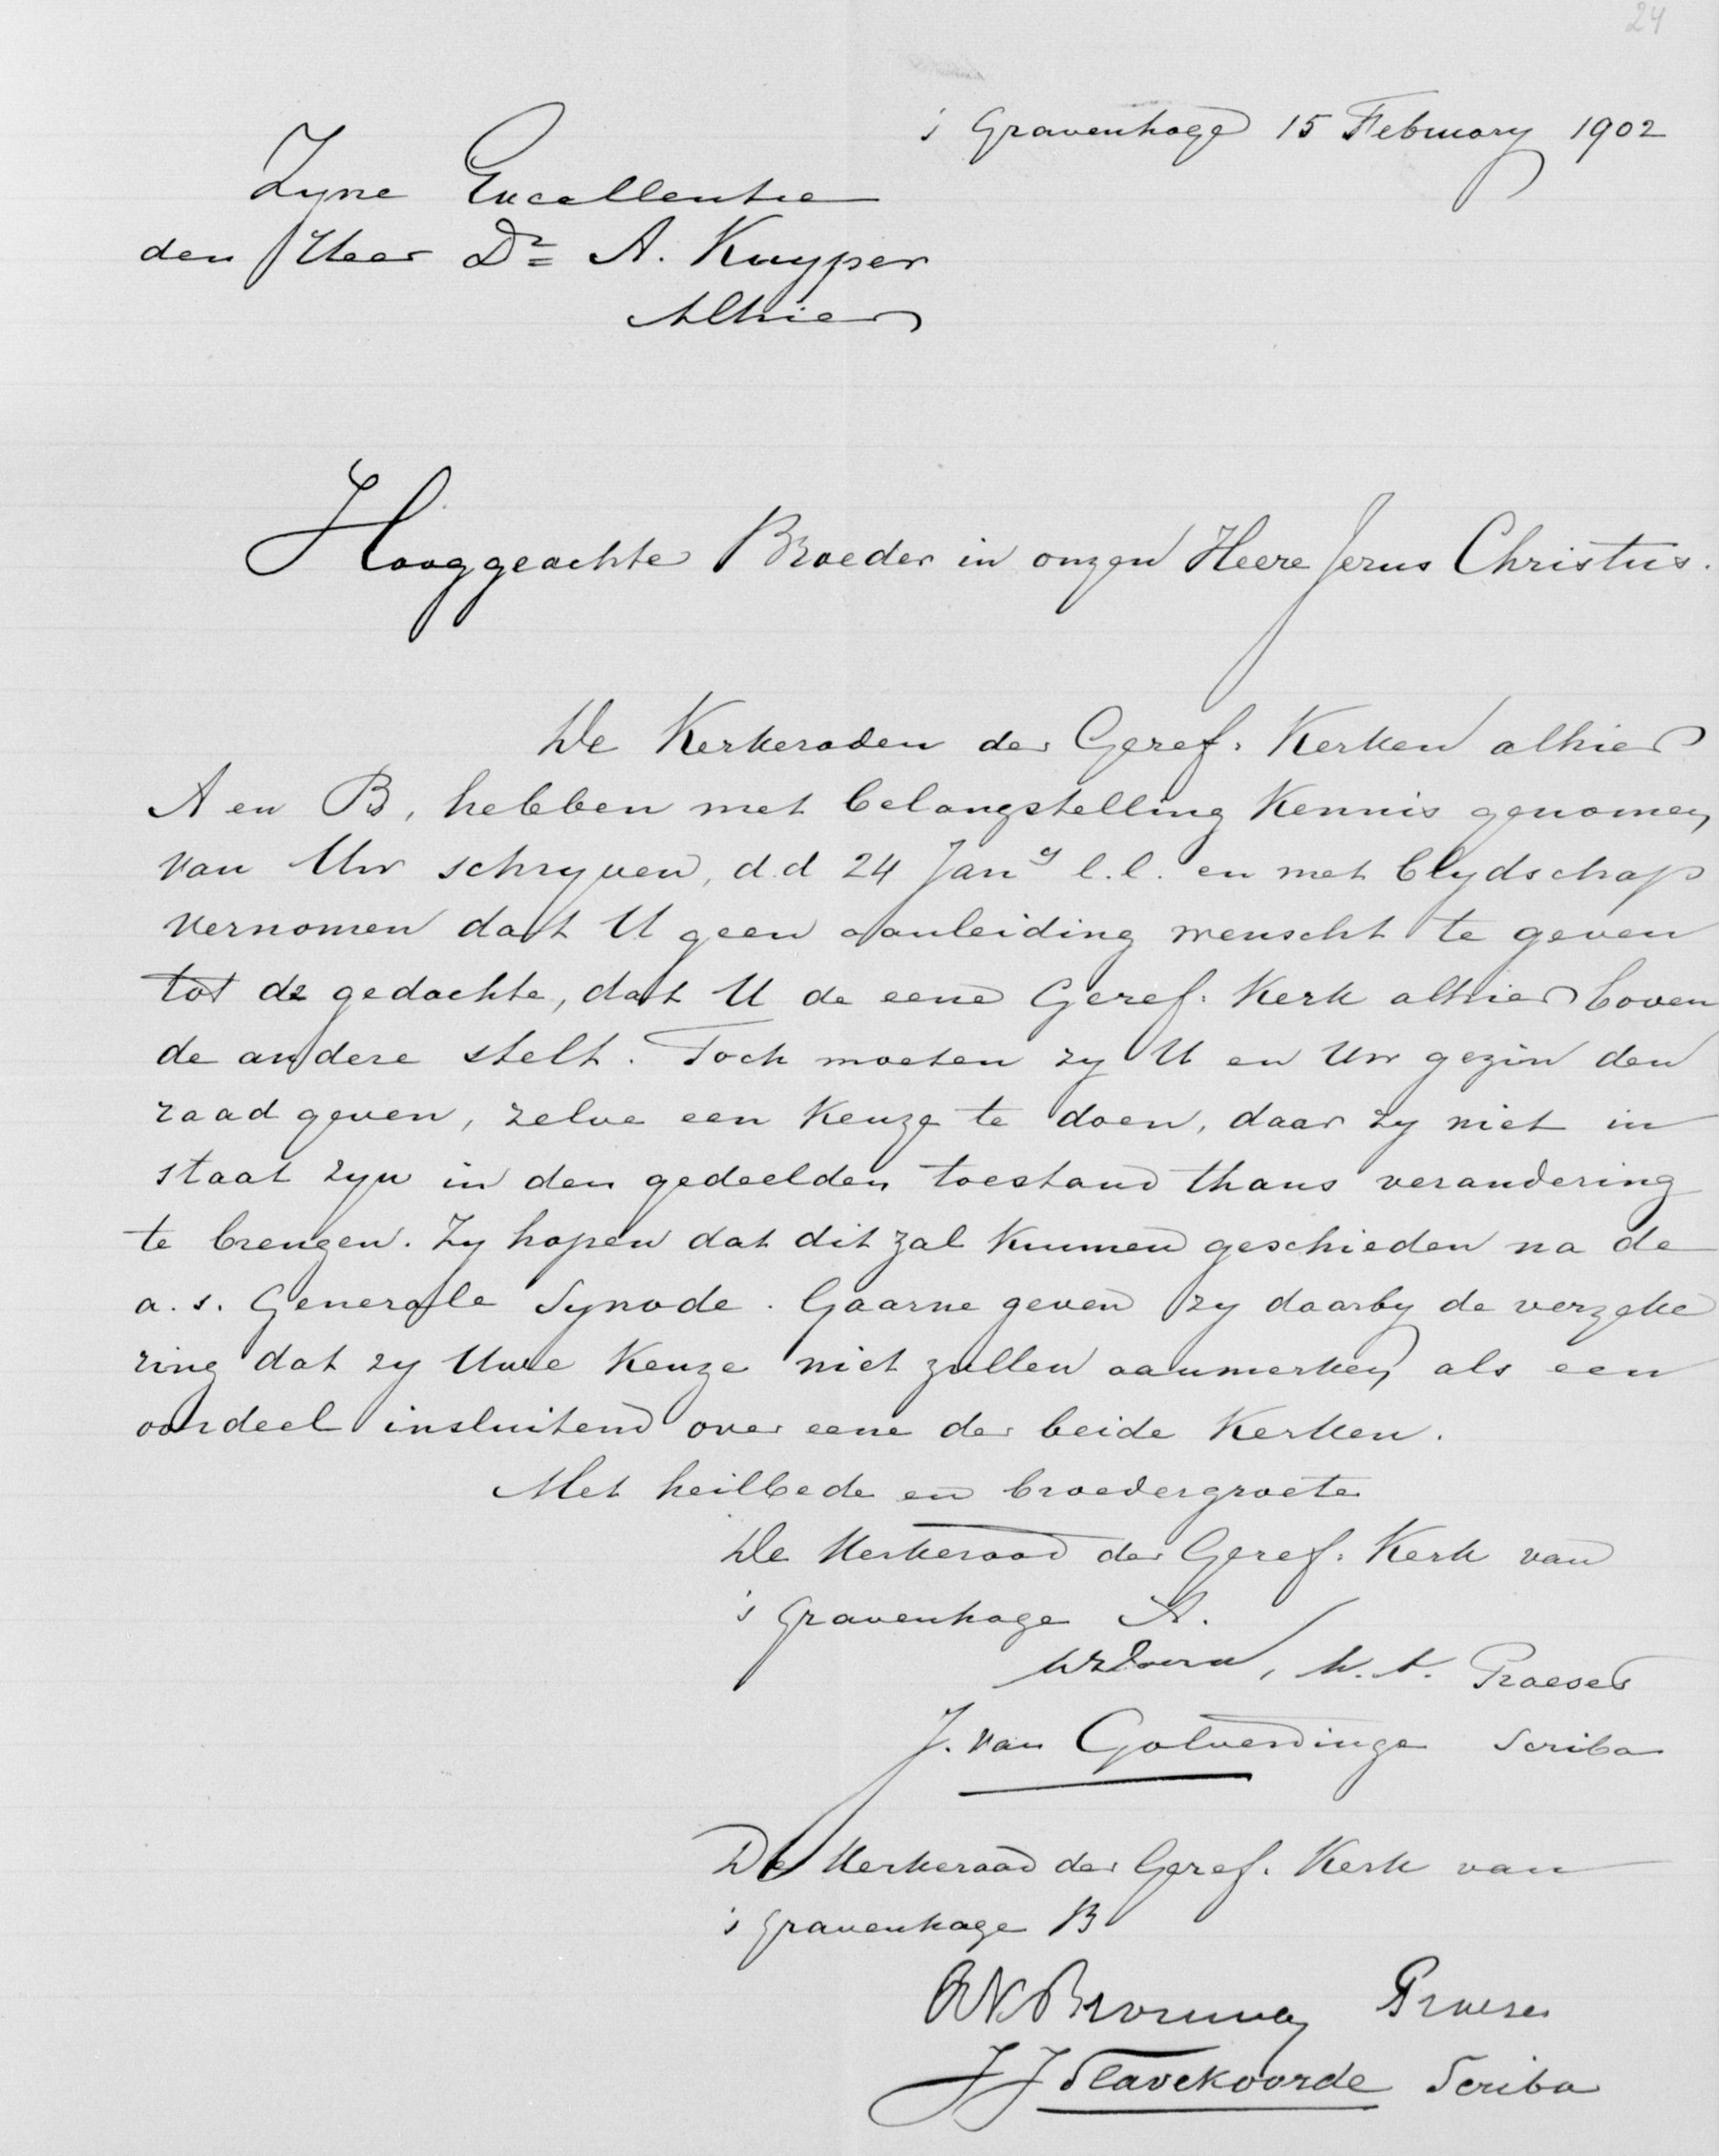 24
's Gravenhage 15 February 1902
Zyne Excellentie
den Heer Dr A. Kuyper
Alhier
Hooggeachte Broeder in onzen Heere Jezus Christus.
De Kerkeraden der Geref. Kerken alhier
A en B, hebben met belangstelling kennis genomen
van Uw schryven, d.d 24 Jany l.l. en met blydschap
vernomen dat U geen aanleiding wenscht te geven
tot de gedachte, dat U de eene Geref. Kerk alhier boven
de andere stelt. Toch moeten zy U en Uw gezin den
raad geven, zelve een keuze te doen, daar zy niet in
staat zyn in den gedeelden toestand thans verandering
te brengen. Zy hopen dat dit zal kunnen geschieden na de
a.s. Generale Synode. Gaarne geven zy daarby de verzeke
ring dat zy Uwe keuze niet zullen aanmerken als een
oordeel insluitend over eene der beide Kerken.
Met heilbede en broedergroete
De Kerkeraad der Geref. Kerk van
's Gravenhage A.
Praeses
J. van Golverdinge Scriba
De Kerkeraad der Geref. Kerk van
's Gravenhage B
Praeses
J J Slavekoorde Scriba